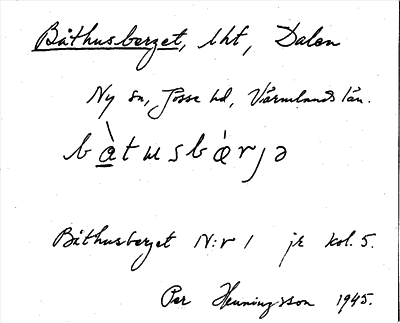 Båthusberget, lht, Dalen
Ny sn, Jösse hd, Värmlands län.
bὰtusbǽrjə
Båthusberget N:r 1 jr kol. 5.
Per Henningsson 1945.